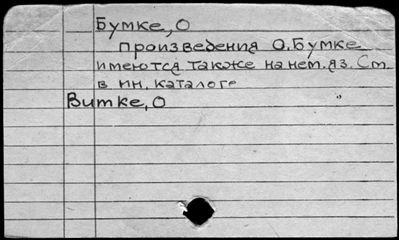 Бумке, О
произведения О. Бумке
имеются также на нем. яз. См.
в ин. каталоге
Витке, О